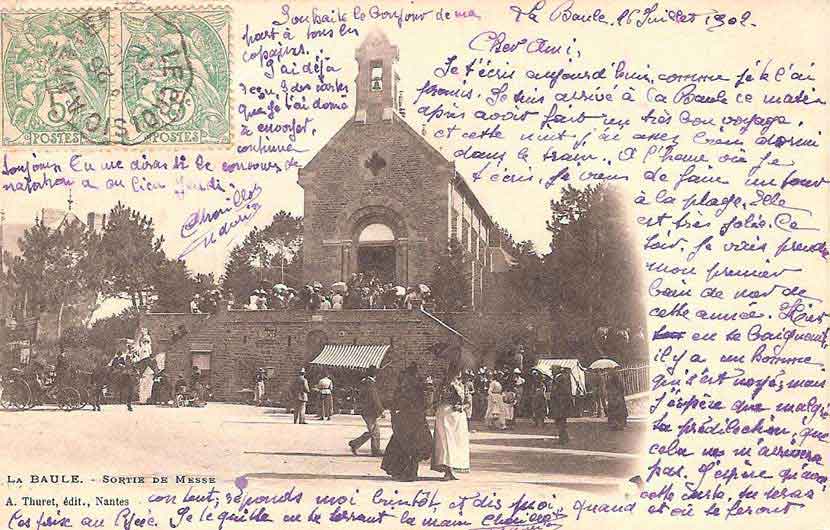 La Baule. 26 Juillet 1902
Cher Ami,
Je t'écris aujourd'hui, comme je te l'ai
promis. Je suis arrivé à La Baule ce matin
après avoir fait un très bon voyage,
et cette nuit j'ai assez bien dormi
dans le train. A l'heure où je
t'écris, je viens de faire un tour
à la plage. Elle
est très jolie. Ce
soir, je vais prendre
mon premier
bain de mer de
cette année. Hier
en se baignant
il y a un homme
qui s'est noyé; mais
j'espère que malgré
ta prédilection, que
cela ne m'arrivera
pas. J'espère qu'avec
cette carte, tu seras
content; réponds moi bientôt et dis moi, quand
et où se feront
les prix au Lycée. Je te quitte en te serrant la main
Souhaite le bonjour de ma
part à tous les
copains.
J'ai déjà
reçu 3 des cartes
que je t'ai donné
à envoyer,
comme
toujours. Tu me diras si le concours de
natation a eu lieu Jeudi.
5c
POSTES
POSTES
LA BAULE. - SORTIE DE MESSE
A. Thuret, édit., Nantes